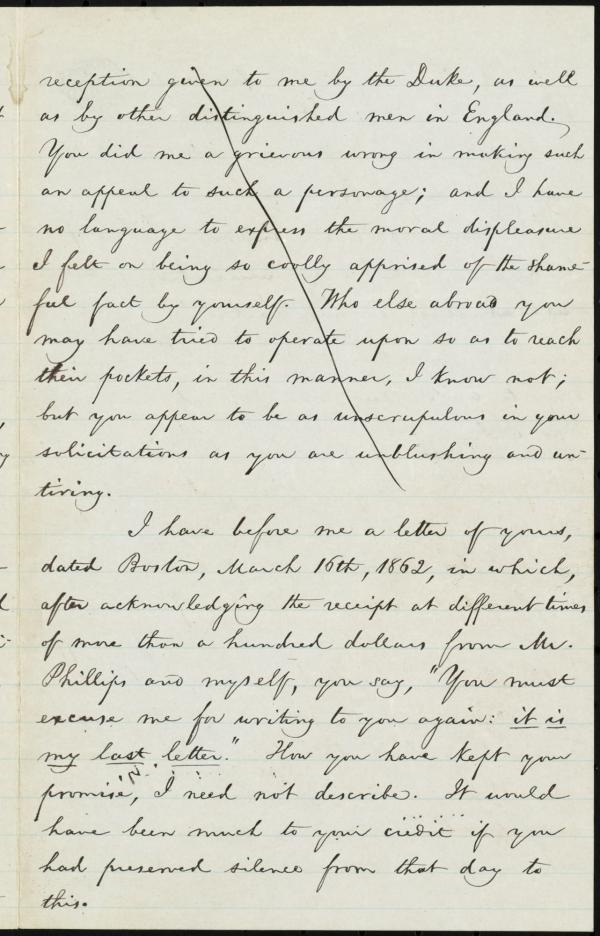 reception given to me by the Duke, as well
as by other distinguished men in England.
You did me a grievous wrong in making such
an appeal to such a personage; and I have
no language to express the moral displeasure
I felt on being so coolly apprised of the shame-
ful fact by yourself. Who else abroad you
may have tried to operate upon so as to reach
their pockets, in this manner, I know not;
but you appear to be as unscrupulous in your
solicitations as you are unblushing and un-
tiring.
I have before me a letter of yours,
dated Boston, March 16th, 1862, in which,
after acknowledging the receipt at different times
of more than a hundred dollars from Mr.
Phillips and myself, you say, "You must
excuse me for writing to you again: it is
my last letter." How you have kept your
promise, I need not describe. It would
have been much to your credit if you
had preserved silence from that day to
this.